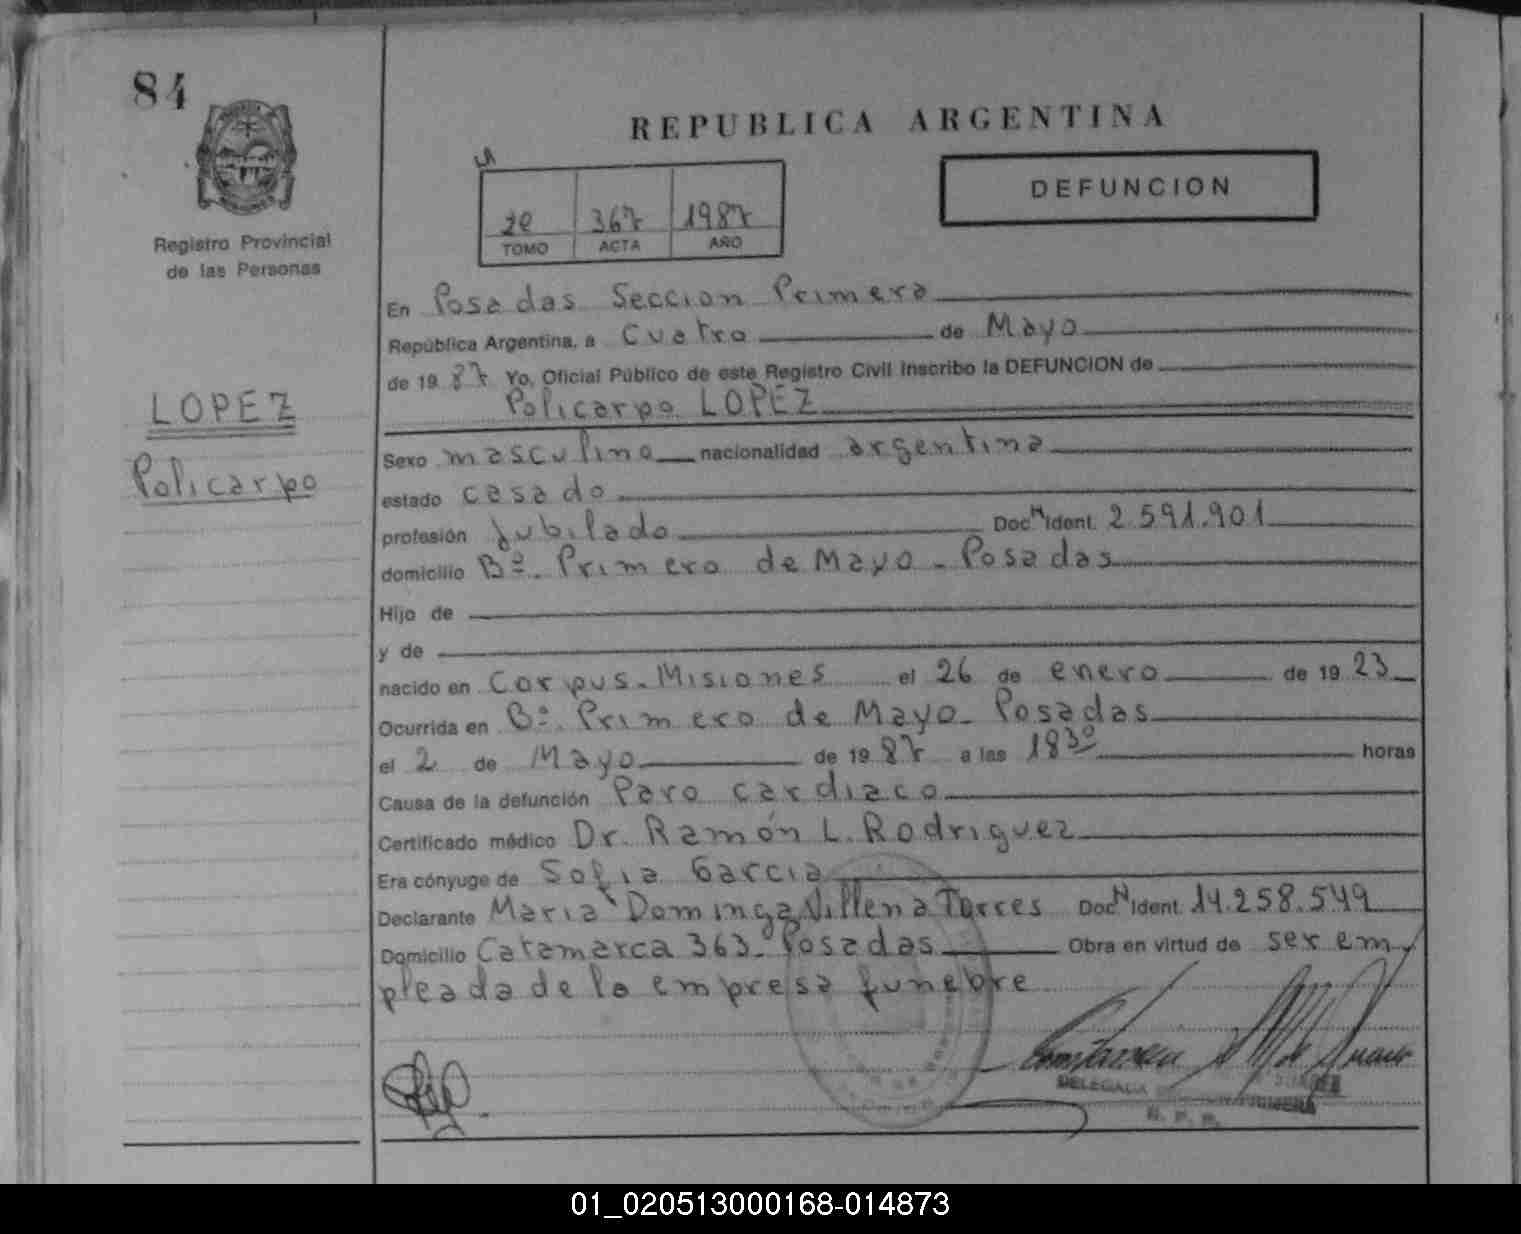 84
REPUBLICA ARGENTINA
DEFUNCION
367 1987
TOMO ACTA AÑO
Registro Provincial
de las Personas
LOPEZ
Policarpo
En Posadas Seccion Primera
República Argentina, a Cuatro de Mayo
de 19 87 Yo, Oficial Público de este Registro Civil inscribo la DEFUNCION de
Policarpo LOPEZ
Sexo masculino nacionalidad argentina
estado casado
profesión Jubilado Doc. N Ident. 2.591.901
domicilio Bº. Primero de Mayo - Posadas
Hijo de
y de
nacido en Corpus - Misiones el 26 de enero de 19 23
Ocurrida en Bº. Primero de Mayo - Posadas
el 2 de Mayo de 19 87 a las 18 30 horas
Causa de la defunción Paro cardiaco
Certificado médico Dr. Ramón L. Rodriguez
Era cónyuge de Sofia Garcia
Declarante Maria Dominga Villena Torres Doc. N Ident. 14.258.549
Domicilio Catamarca 363 - Posadas Obra en virtud de ser em
pleada de la empresa funebre
DELEGADA PRIMERA
R. P. P.
01_020513000168-014873